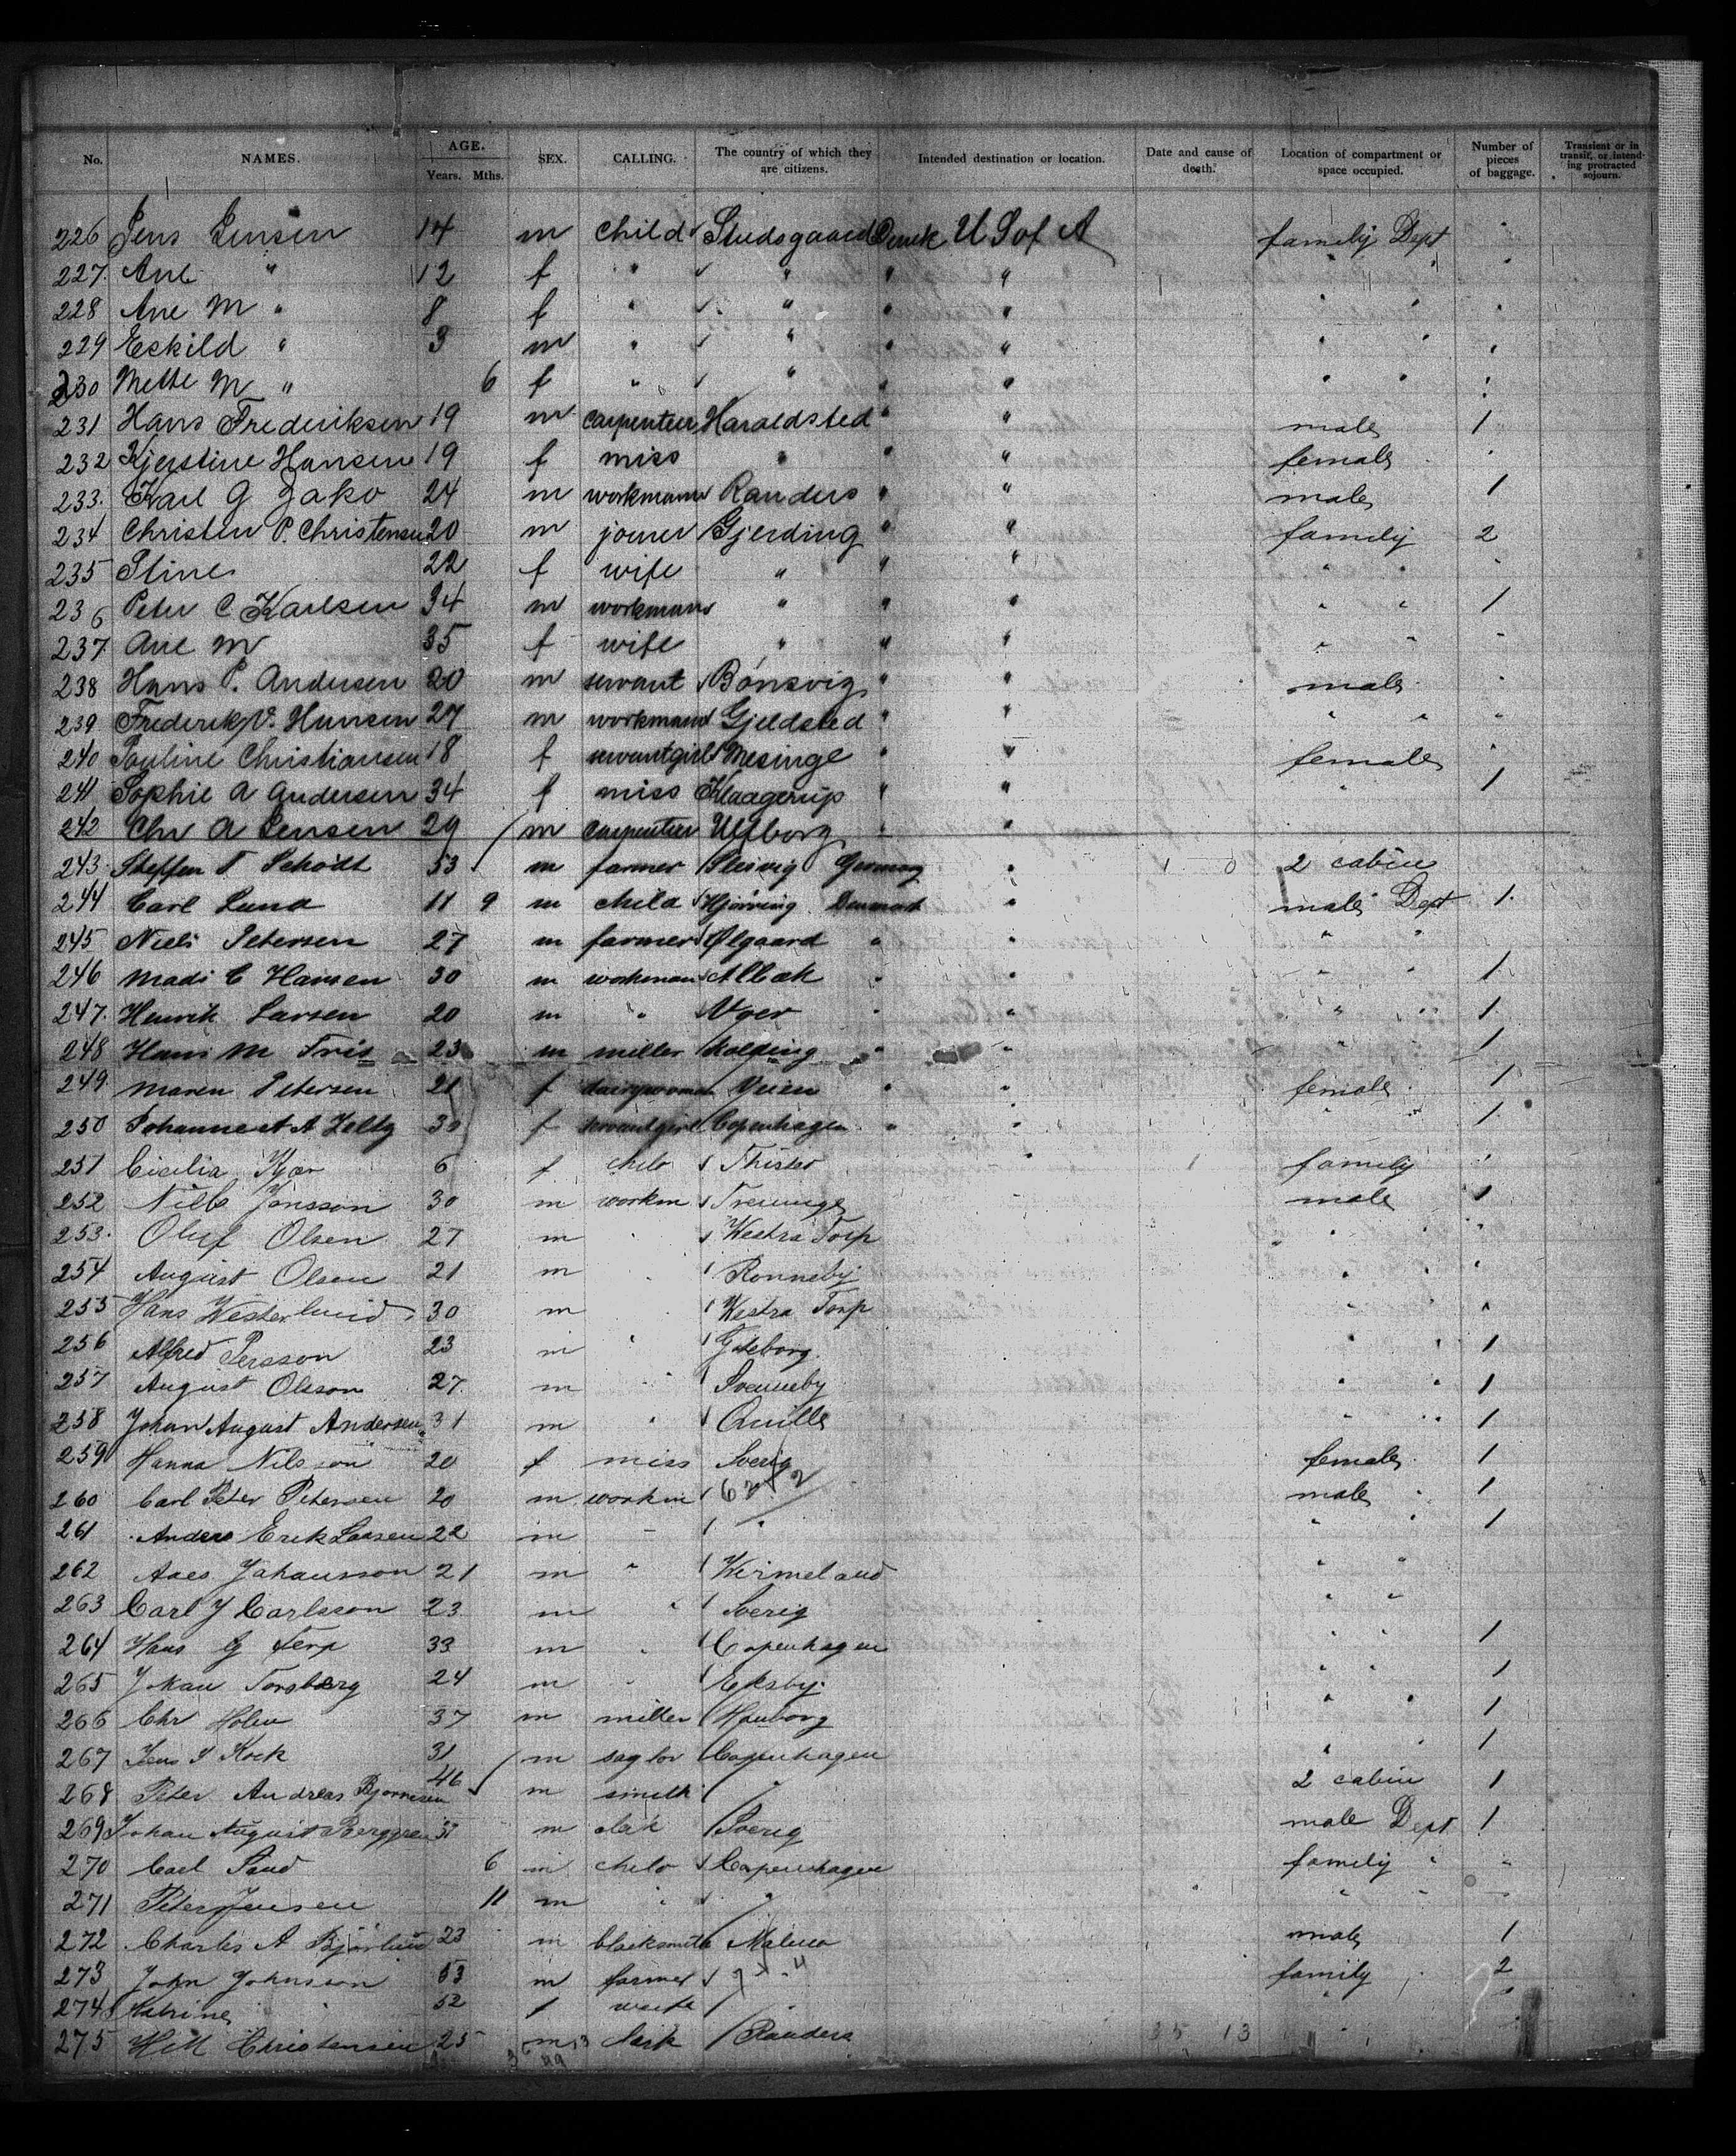 No. NAMES. AGE. Years. Mths. SEX. CALLING. The country of which they are citizens. Intended destination or location. Date and cause of death. Location of compartment or space occupied. Number of pieces of baggage. Transient or in transit, or intending protracted sojourn.
226 Jens Jensen 14 m child Studsgaard Dmk U S of A family Dept "
227. Ane " 12 f " " " " " " "
228 Ane M " 8 f " " " " " " "
229 Eskild " 3 m " " " " " " "
230 Mette M " 6 f " " " " " " "
231 Hans Frederiksen 19 m carpenter Haraldsted " " male 1
232 Kjerstine Hansen 19 f miss " " " female "
233. Karl G Jako 24 m workman Randers " " male 1
234 Christen P. Christensen 20 m joiner Gjerding " " family 2
235 Stine 22 f wife " " " " " "
236 Peter C Karlsen 34 m workman " " " " " 1
237. Ane M 35 f wife " " " " " "
238 Hans P. Andersen 20 m servant Bönsvig " " male "
239 Frederik V. Hansen 27 m workman Gjeldsted " " " " "
240 Pauline Christiansen 18 f servantgirl Mesinge " " female "
241 Sophie A Andersen 34 f miss Klaagerup " " " 1
242 Chr A Jensen 29 m carpenter Ulfborg " "
243. Steffen T Schödt 53 m farmer Slesvig Germany " 2 cabin
244 Carl Lund 11 9 m child Hjörring Denmark " male Dept 1.
245 Niels Petersen 27 m farmer Ølgaard " " " "
246 Mads C Hansen 30 m workman Albæk " " " " 1
247. Henrik Larsen 20 m " " " " " 1
248 Hans M Friis 23 m miller Kolding " " " " 1
249. Maren Petersen 21 f dairywoman " " female 1
250 Johanne A A 30 f servantgirl Copenhagen " " " 1
251 Cicilia Kjær 6 f child Thisted " family "
252 Nills Jönsson 30 m workm male 1
253. Oluf Olsen 27 m " Westra Torp " " "
254 August Olsen 21 m " Ronneby " " "
255 Hans Westerlund 30 m " Westra Torp " " "
256 Alfred Persson 23 m " Göteborg. " " 1
257 August Olsson 27. m " Svenneby " " 1
258 Johan August Andersen 31 m " Quille " " 1
259 Hanna Nilsson 20 f miss Sverig female 1
260 Carl Peter Petersen 20 m workm male 1
261 Anders Erik Larsen 22 m " " " " 1
262 Johansson 21 m " Wermeland " "
263 Carl J Carlsson 23 m " Sverig " "
264 Hans G 33 m " Copenhagen " " 1
265 Johan Torsberg 24 m " Eksby. " " 1
266 Chr Holm 37 m miller " " 1
267 Jens Kock 31 m Copenhagen " " 1
268 Peter Andreas 46 m smith " 2 cabin 1
269 Johan August Berggren m clerk Sverig male Dept 1
270 Carl 6 m child Copenhagen family " "
271 Peter Jensen 11 m " " " " "
272 Charles A 23 m blacksmith male 1
273 John Johnsson 53 m farmer family 2
274 Katrine 52 f " " "
275 H M Christensen 25 m clerk Randers " "